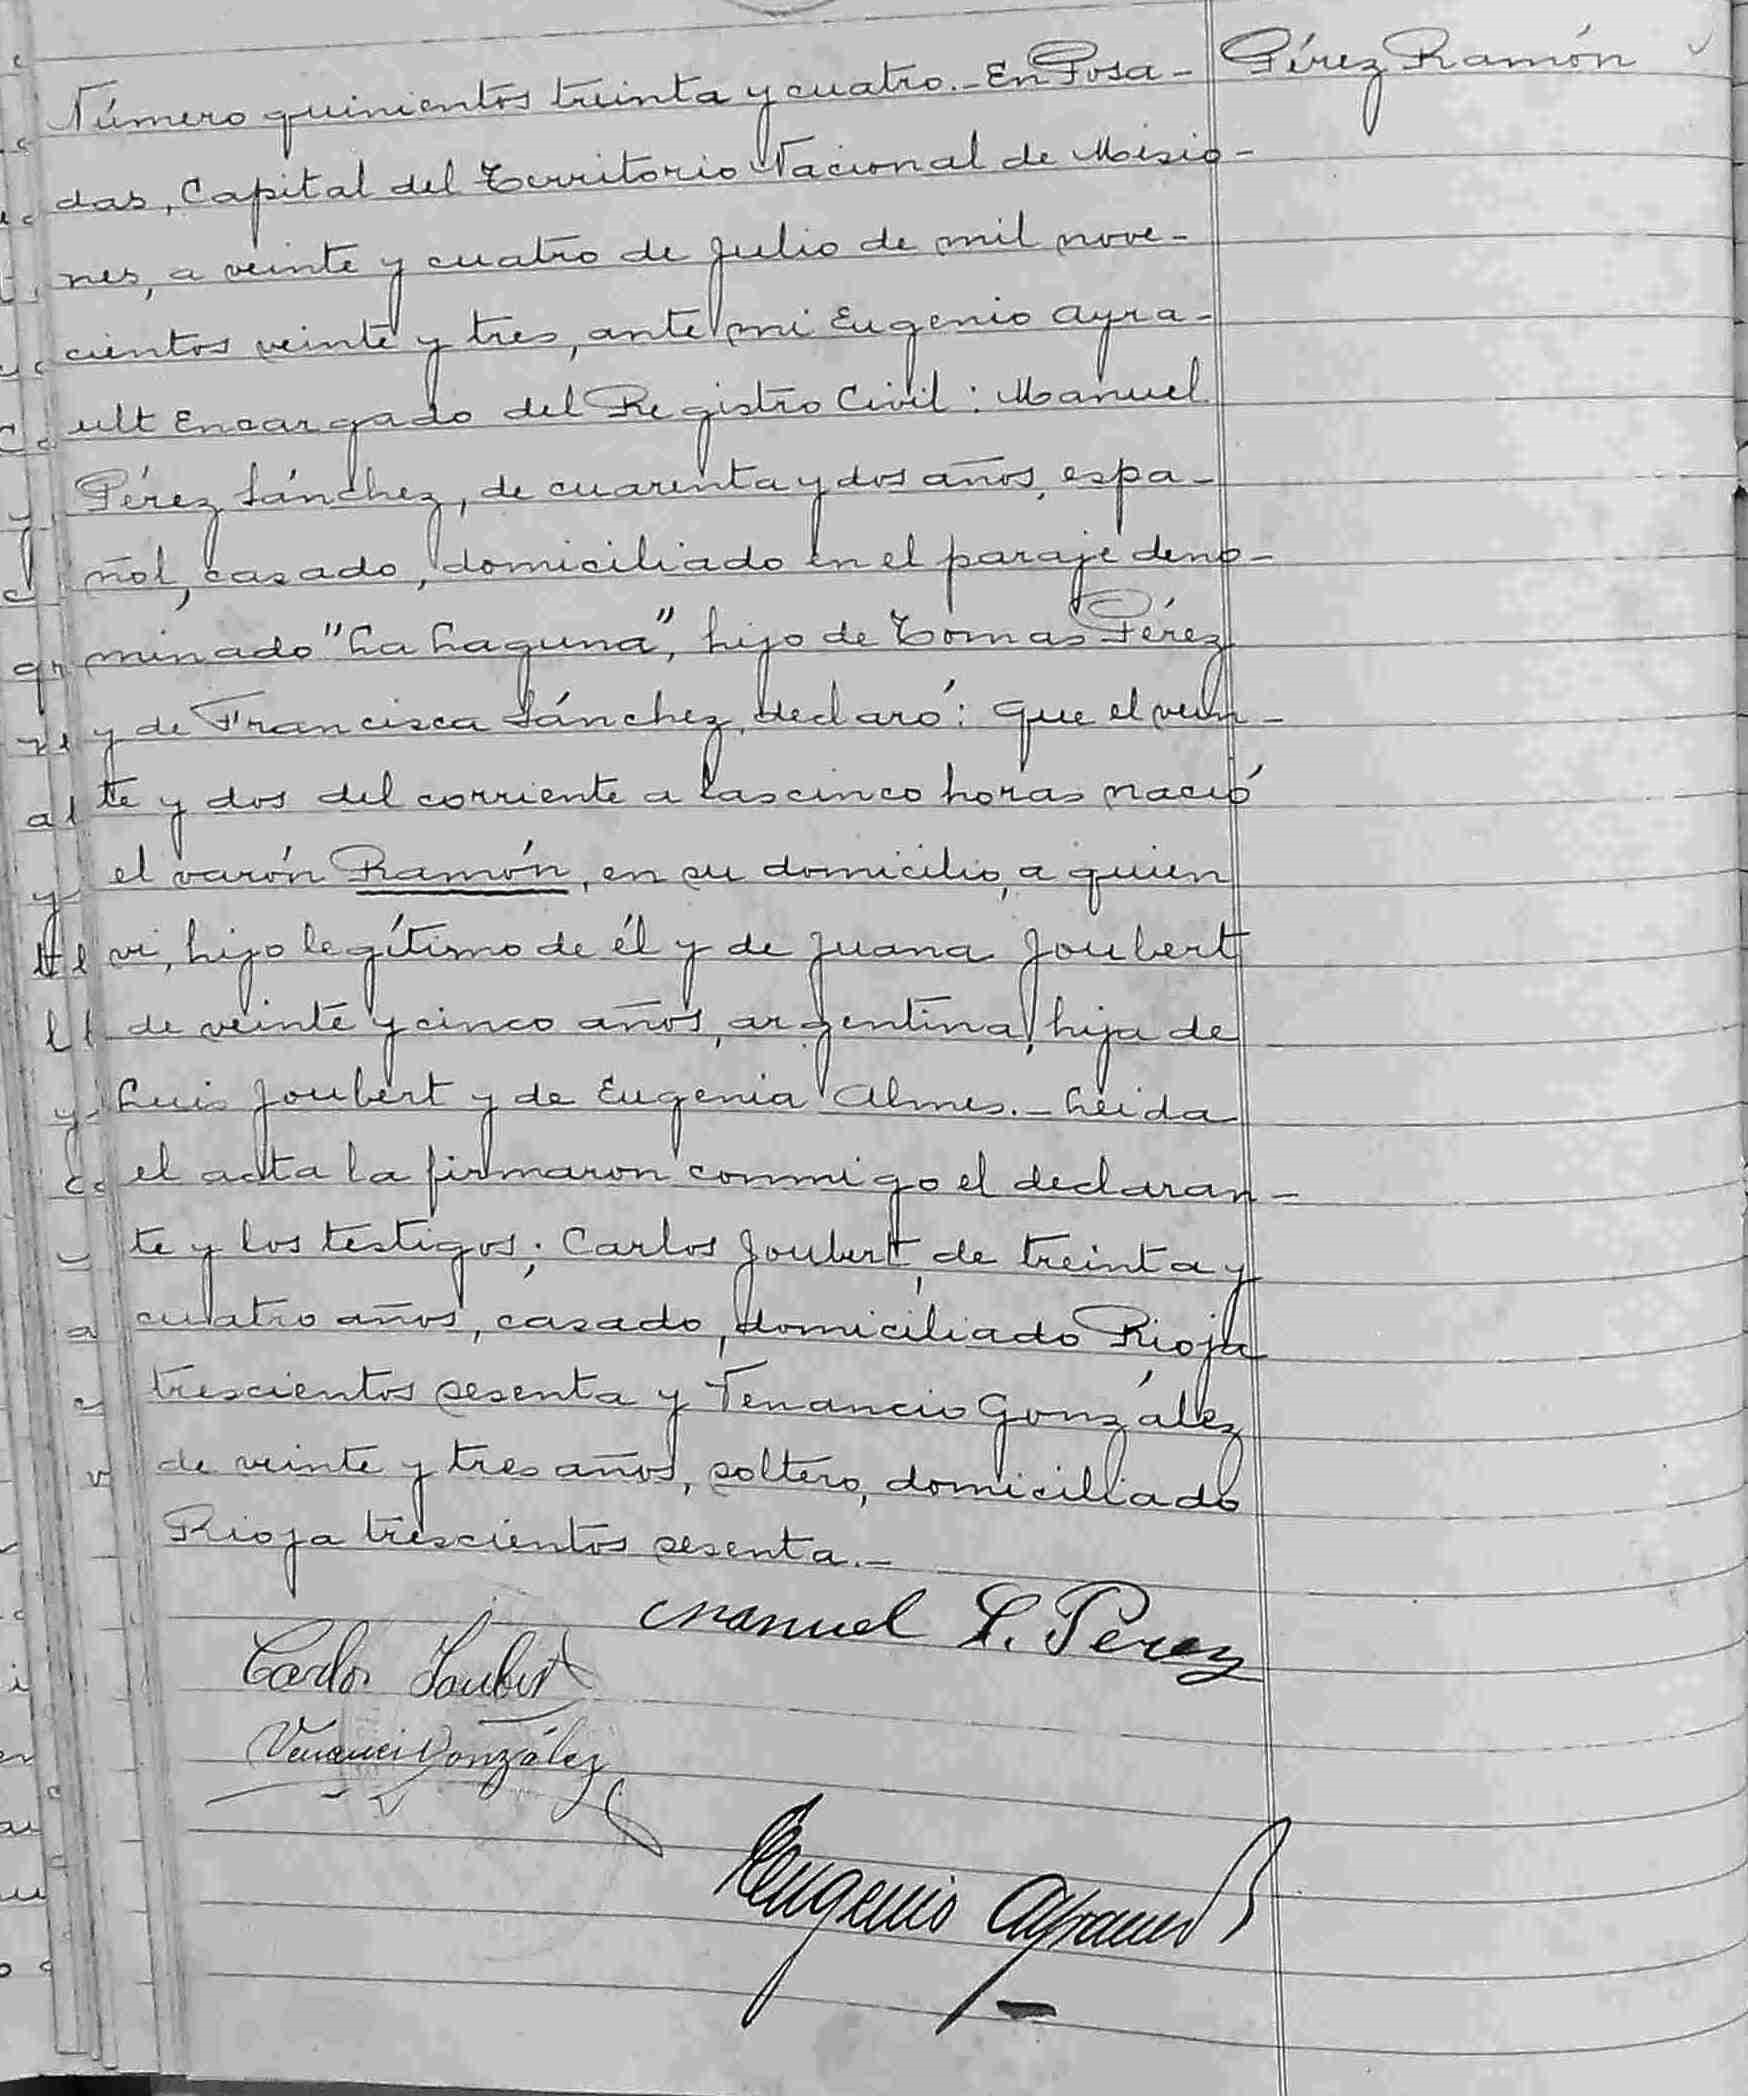 Pérez Ramón
Número quinientos treinta y cuatro.- En Posa-
das, Capital del Territorio Nacional de Misio-
nes, a veinte y cuatro de Julio de mil nove-
cientos veinte y tres, ante mi Eugenio Ayra-
ult Encargado del Registro Civil: Manuel
Pérez Sánchez, de cuarenta y dos años, espa-
ñol, casado, domiciliado en el paraje deno-
minado "La Laguna", hijo de Tomas Pérez
y de Francisca Sánchez, declaró: Que el vein-
te y dos del corriente a las cinco horas nació
el varón Ramón, en su domicilio, a quien
vi, hijo legítimo de él y de Juana Joubert
de veinte y cinco años, argentina, hija de
Luis Joubert y de Eugenia Almes.- Leida
el acta la firmaron conmigo el declaran-
te y los testigos; Carlos Joubert, de treinta y
cuatro años, casado, domiciliado Rioja
trescientos sesenta y Venancio González,
de veinte y tres años, soltero, domiciliado
Rioja trescientos sesenta.-
Manuel S. Pérez
Carlos Joubert
Venancio González
Eugenio Ayrault